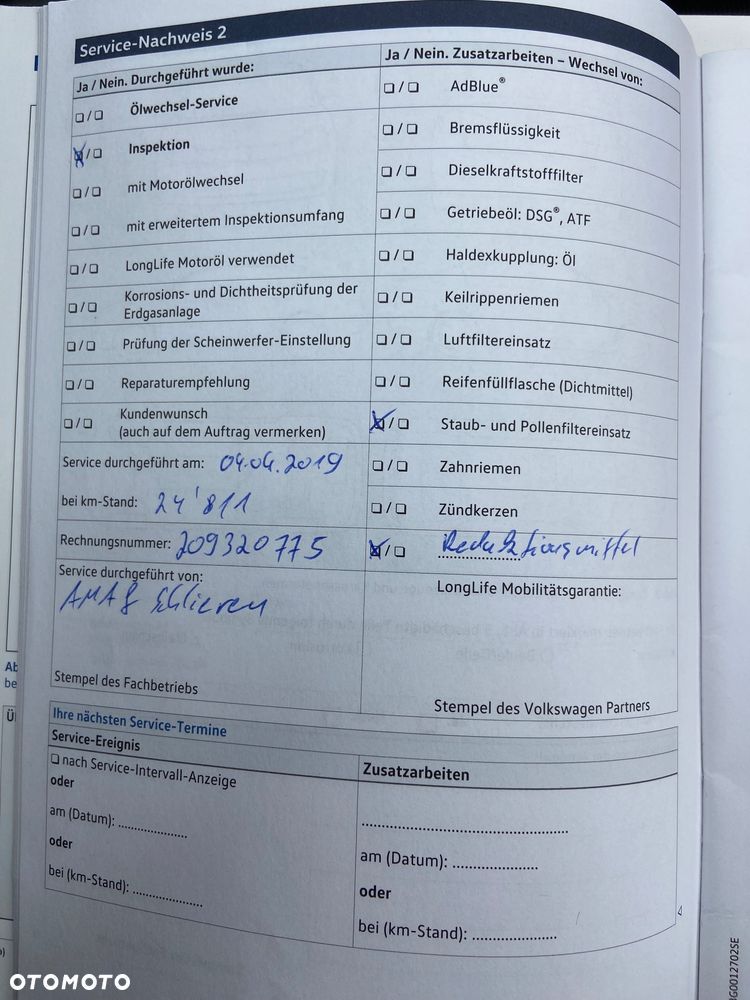 Service-Nachweis 2
Ja / Nein. Durchgeführt wurde:
❏ / ❏ Ölwechsel-Service
☒ / ❏ Inspektion
❏ / ❏ mit Motorölwechsel
❏ / ❏ mit erweitertem Inspektionsumfang
❏ / ❏ LongLife Motoröl verwendet
❏ / ❏ Korrosions- und Dichtheitsprüfung der
Erdgasanlage
❏ / ❏ Prüfung der Scheinwerfer-Einstellung
❏ / ❏ Reparaturempfehlung
❏ / ❏ Kundenwunsch
(auch auf dem Auftrag vermerken)
Service durchgeführt am: 04.04.2019
bei km-Stand: 24'811
Rechnungsnummer: 209320775
Service durchgeführt von:
AMAG Schlieren
Stempel des Fachbetriebs
Ja / Nein. Zusatzarbeiten – Wechsel von:
❏ / ❏ AdBlue®
❏ / ❏ Bremsflüssigkeit
❏ / ❏ Dieselkraftstofffilter
❏ / ❏ Getriebeöl: DSG®, ATF
❏ / ❏ Haldexkupplung: Öl
❏ / ❏ Keilrippenriemen
❏ / ❏ Luftfiltereinsatz
❏ / ❏ Reifenfüllflasche (Dichtmittel)
☒ / ❏ Staub- und Pollenfiltereinsatz
❏ / ❏ Zahnriemen
❏ / ❏ Zündkerzen
☒ / ❏ Reduktionsmittel
LongLife Mobilitätsgarantie:
Stempel des Volkswagen Partners
Ihre nächsten Service-Termine
Service-Ereignis
❏ nach Service-Intervall-Anzeige
oder
am (Datum): ....................
oder
bei (km-Stand): ....................
Zusatzarbeiten
..................................................
am (Datum): ....................
oder
bei (km-Stand): ....................
OTOMOTO